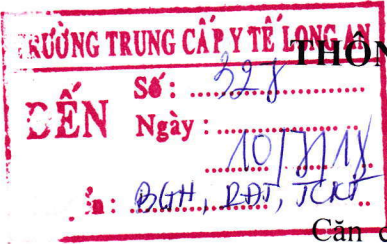 TRƯỜNG TRUNG CẤP Y TẾ LONG AN
THÔN
ĐẾN
Số: 328
Ngày:
10/7/18
BGH, TCKT
Căn c